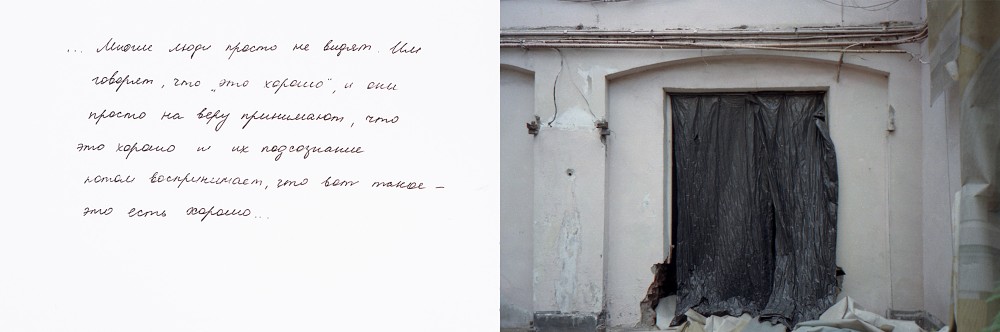 ... Многие люди просто не видят. Им
говорят, что „это хорошо", и они
просто на веру принимают, что
это хорошо и их подсознание
потом воспринимает, что вот такое –
это есть хорошо...